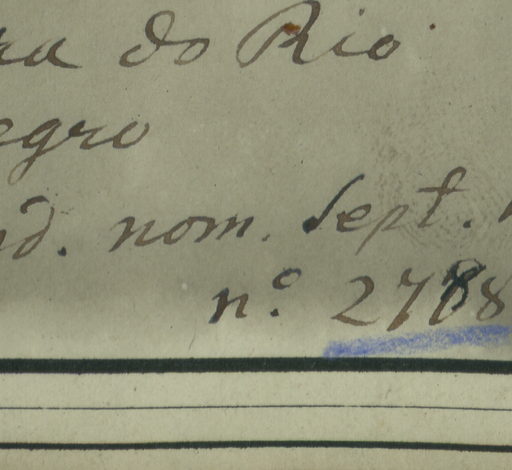 ra do Rio
egro
id. nom. Sept.
nº 2788